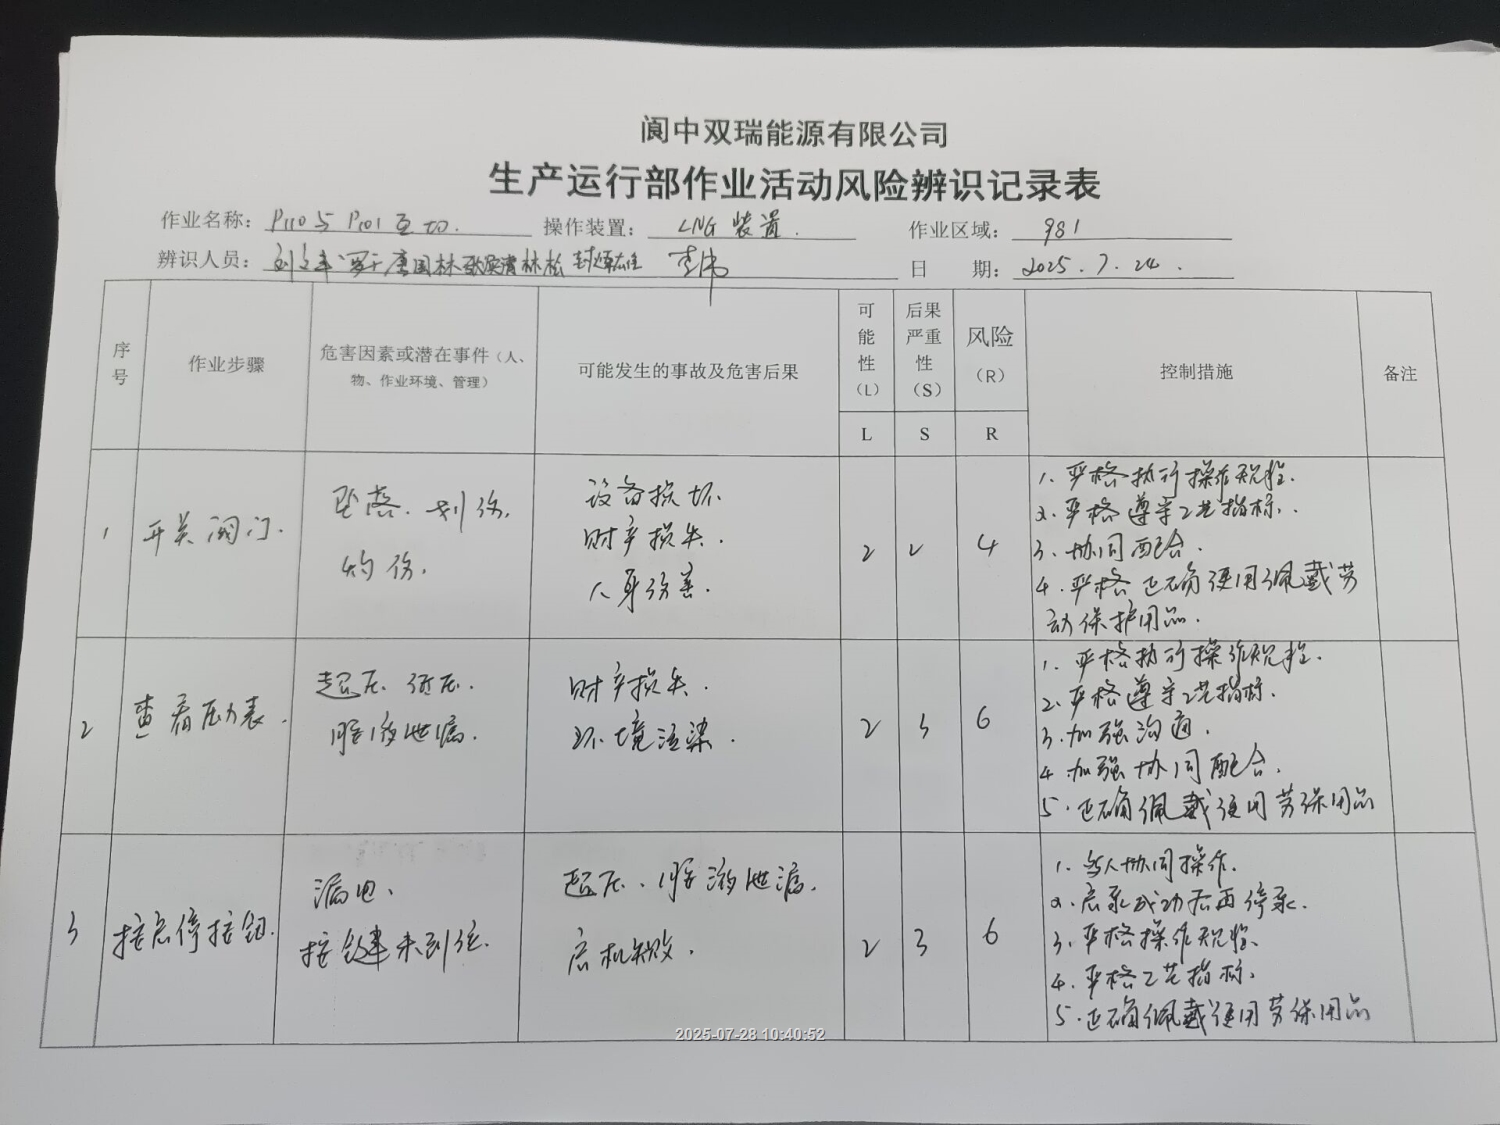 阆中双瑞能源有限公司
生产运行部作业活动风险辨识记录表
作业名称: P110与P101互切. 操作装置: LNG 装置. 作业区域: 981
辨识人员: 李伟 日 期: 2025.7.24.
序号 作业步骤 危害因素或潜在事件(人、物、作业环境、管理) 可能发生的事故及危害后果 可能性(L) 后果严重性(S) 风险(R) 控制措施 备注
L S R
1 开关阀门. 坠落. 划伤. 灼伤. 设备损坏. 财产损失. 人身伤害. 2 2 4
1. 严格执行操作规程.
2. 严格遵守工艺指标.
3. 协同配合.
4. 严格正确使用佩戴劳
动保护用品.
2 查看压力表. 超压. 低压. 胺液泄漏. 财产损失. 环境污染. 2 3 6
1. 严格执行操作规程.
2. 严格遵守工艺指标.
3. 加强沟通.
4. 加强协同配合.
5. 正确佩戴使用劳保用品
3 按启停按钮. 漏电、 按键未到位. 超压、胺液泄漏. 启机失败. 2 3 6
1. 多人协同操作.
2. 启泵成功后再停泵.
3. 严格操作规程.
4. 严格工艺指标.
5. 正确佩戴使用劳保用品
2025-07-28 10:40:52